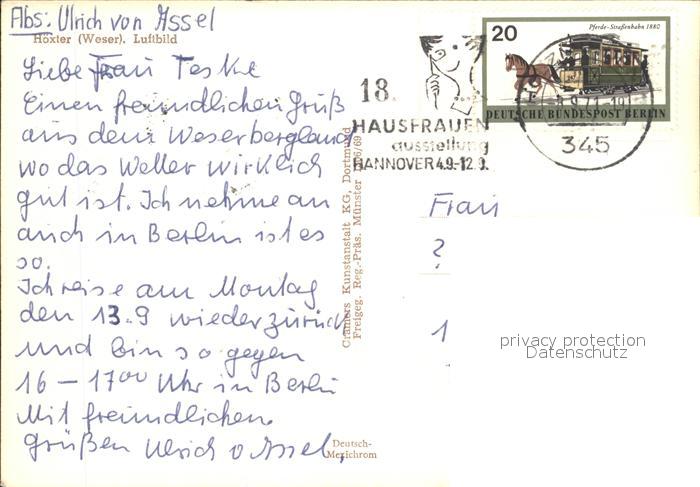 Abs: Ulrich von Assel
Höxter (Weser), Luftbild
Liebe Frau Teske
Einen freundlichen Gruß
aus dem Weserbergland
wo das Wetter wirklich
gut ist. Ich nehme an
auch in Berlin ist es
so.
Ich reise am Montag
den 13.9 wieder zurück
und bin so gegen
16 – 17⁰⁰ Uhr in Berlin
Mit freundlichen
Grüßen Ulrich v Assel,
Cramers Kunstanstalt KG, Dortmund
Freigeg. Reg.-Präs. Münster
Deutsch-
Mexichrom
18.
HAUSFRAUEN
ausstellung
HANNOVER 4.9.-12.9.
20
Pferde-Straßenbahn 1880
DEUTSCHE BUNDESPOST BERLIN
345
Frau
?
1
privacy protection
Datenschutz